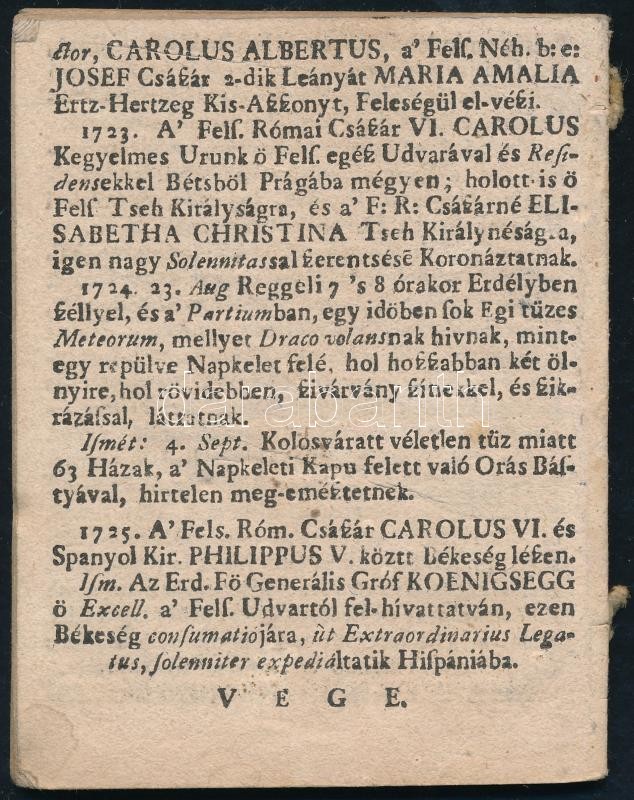 ctor, CAROLUS ALBERTUS, a' Felſ. Néh. b: e:
JOSEF Csáßár 2-dik Leányát MARIA AMALIA
Ertz-Hertzeg Kis-Aßßonyt, Feleségül el-véßi.
1723. A' Felſ. Római Csáßár VI. CAROLUS
Kegyelmes Urunk ö Felſ. egéß Udvarával és Reſi-
densekkel Bétsböl Prágába mégyen; holott-is ö
Felſ Tseh Királyságra, és a' F: R: Csáßárné ELI-
SABETHA CHRISTINA Tseh Királynéságra,
igen nagy Solennitassal ßerentsésé Koronáztatnak.
1724. 23. Aug Reggeli 7 's 8 órakor Erdélyben
ßéllyel, és a' Partiumban, egy idöben ſok Egi tüzes
Meteorum, mellyet Draco volansnak hivnak, mint-
egy repülve Napkelet felé, hol hoßßabban két öl-
nyire, hol rövidebben, ßivárvány ßinekkel, és ßik-
rázáſsal, láttatnak.
Iſmét: 4. Sept. Kolosváratt véletlen tüz miatt
63 Házak, a' Napkeleti Kapu felett való Orás Báſ-
tyával, hirtelen meg-eméßtetnek.
1725. A' Fels. Róm. Csáßár CAROLUS VI. és
Spanyol Kir. PHILIPPUS V. köztt Békeség léßen.
Iſm. Az Erd. Fö Generális Gróf KOENIGSEGG
ö Excell. a' Felſ. Udvartól fel-hívattatván, ezen
Békeség conſumatiójára, ùt Extraordinarius Lega-
tus, ſolenniter expediáltatik Hiſpániába.
V E G E.
darabanth